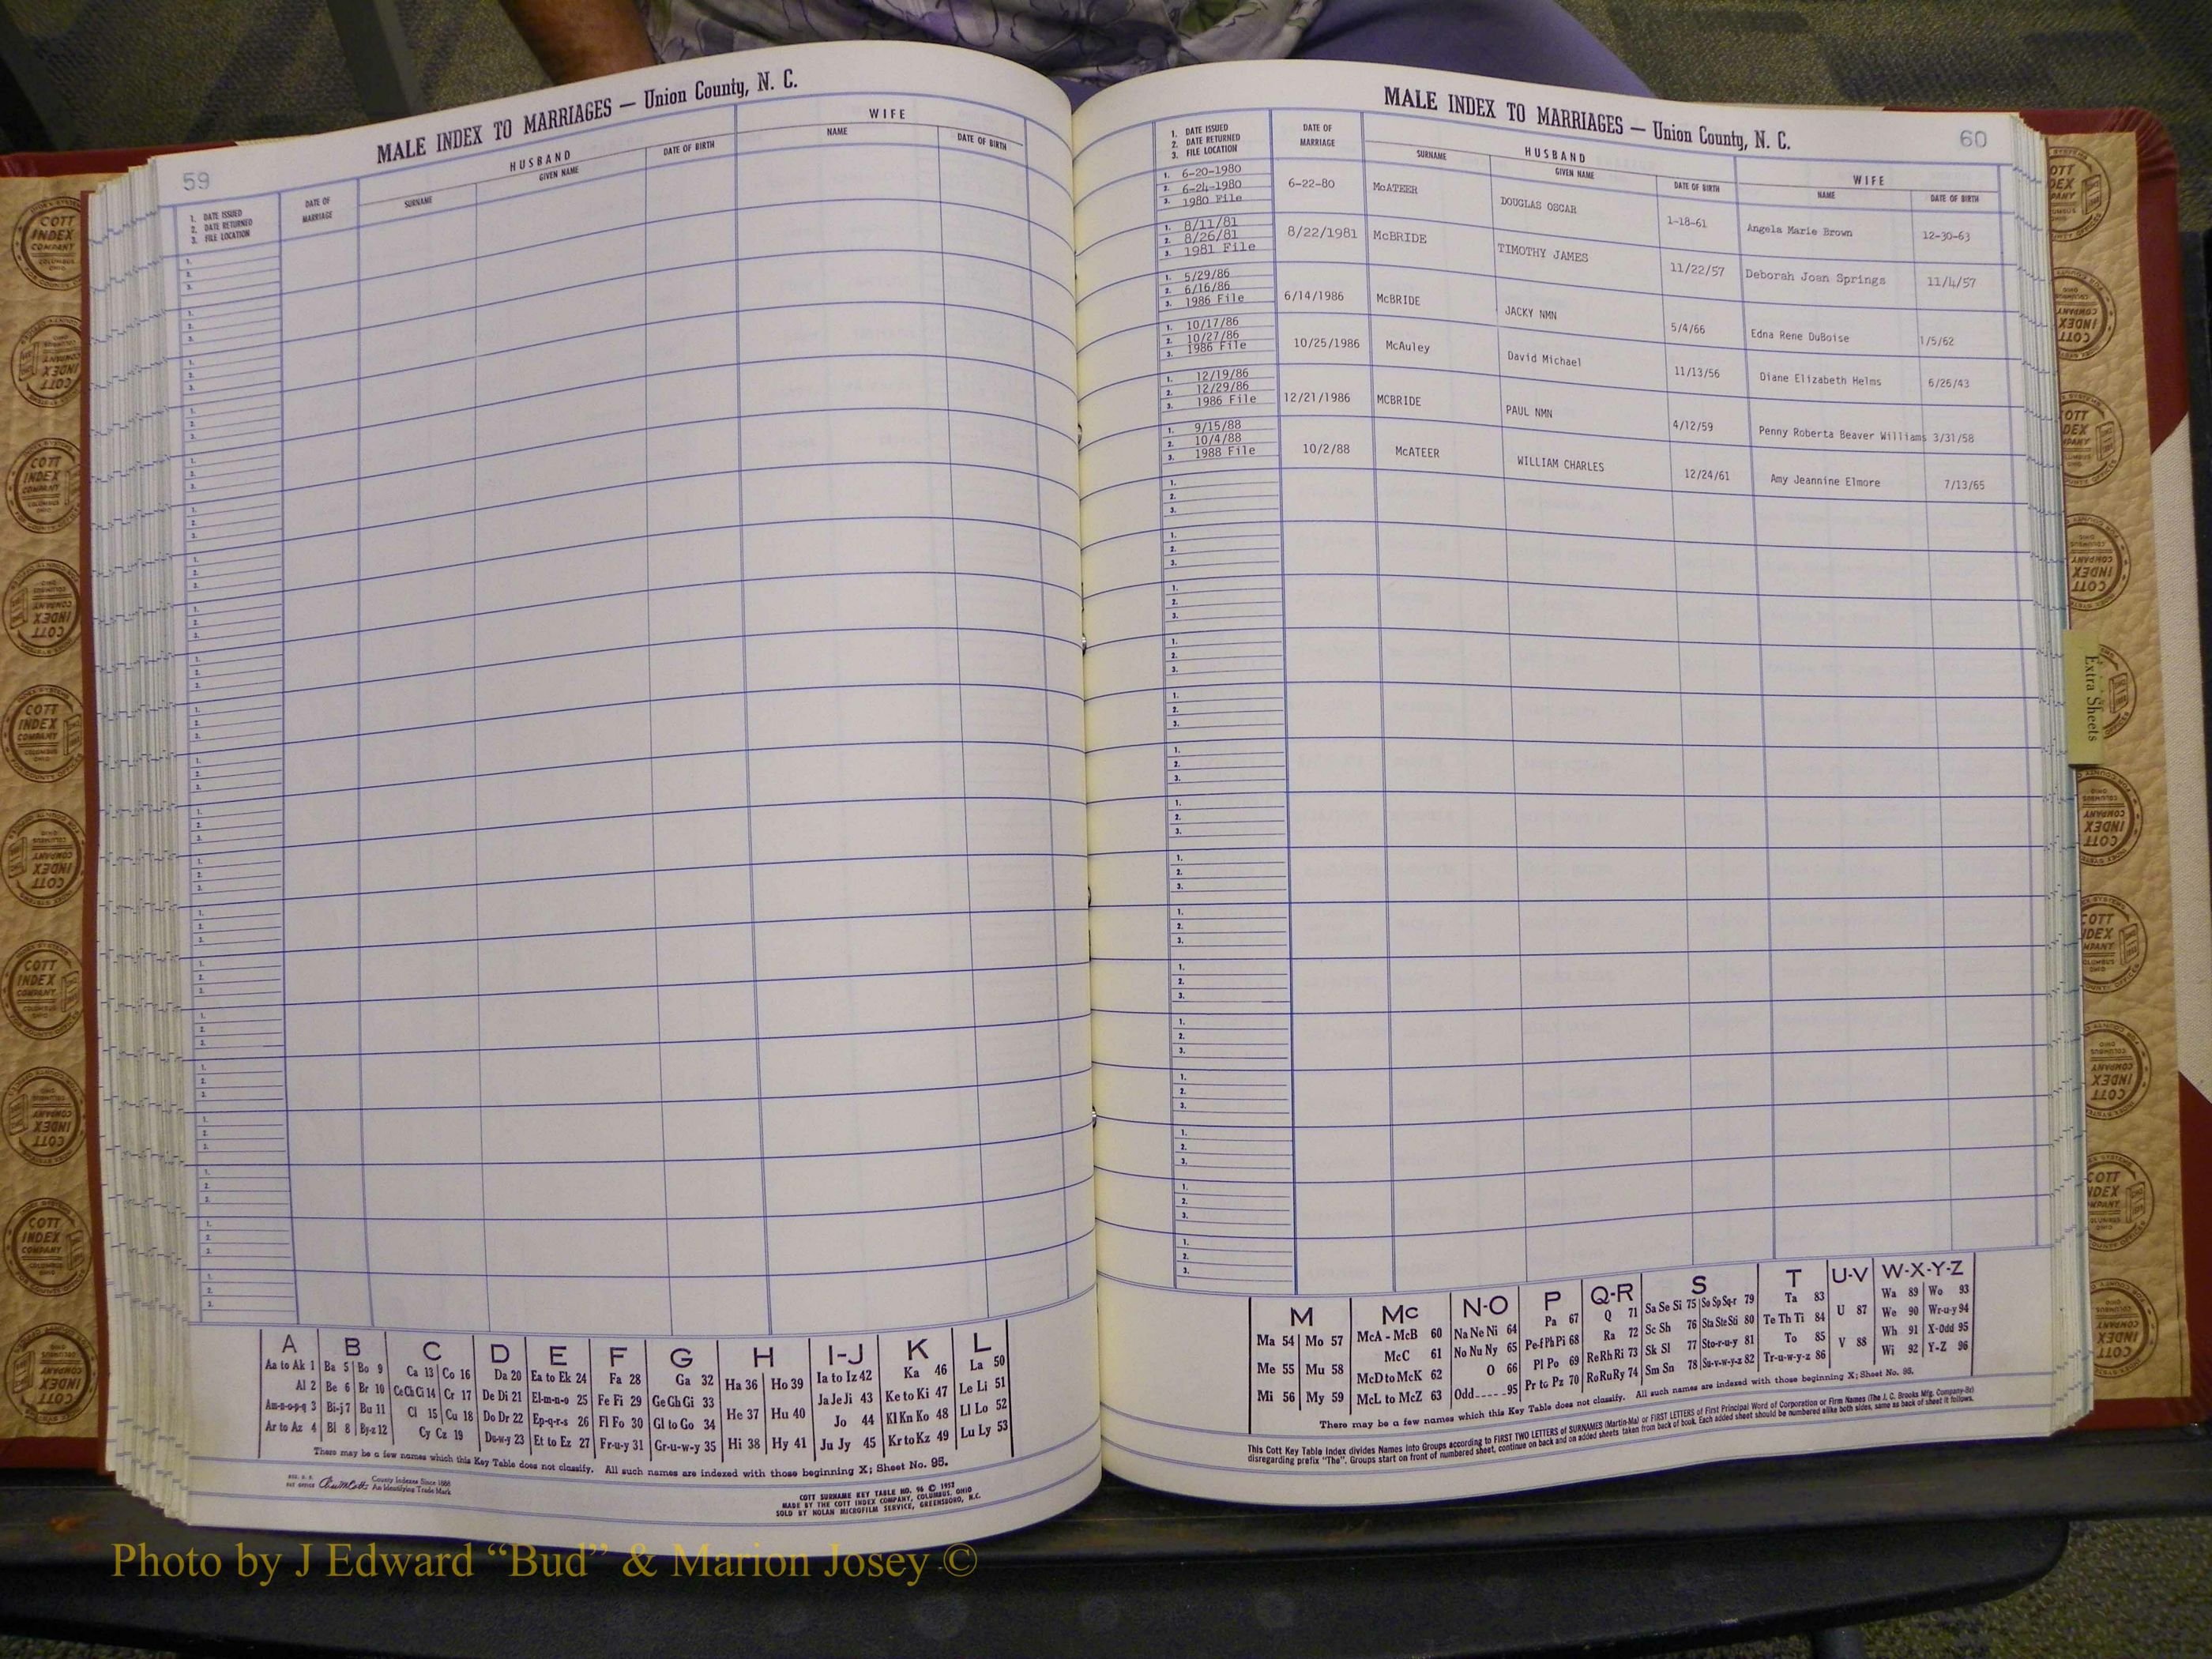 59
MALE INDEX TO MARRIAGES — Union County, N. C.
1. DATE ISSUED
2. DATE RETURNED
3. FILE LOCATION
DATE OF
MARRIAGE
HUSBAND
SURNAME
GIVEN NAME
DATE OF BIRTH
WIFE
NAME
DATE OF BIRTH
A
Aa to Ak 1
Al 2
Am-n-o-p-q 3
Ar to Az 4
B
Ba 5 Bo 9
Be 6 Br 10
Bi-j 7 Bu 11
Bl 8 By-z 12
C
Ca 13 Co 16
Ce Ch Ci 14 Cr 17
Cl 15 Cu 18
Cy Cz 19
D
Da 20
De Di 21
Do Dr 22
Du-w-y 23
E
Ea to Ek 24
El-m-n-o 25
Ep-q-r-s 26
Et to Ez 27
F
Fa 28
Fe Fi 29
Fl Fo 30
Fr-u-y 31
G
Ga 32
Ge Gh Gi 33
Gl to Go 34
Gr-u-w-y 35
H
Ha 36 Ho 39
He 37 Hu 40
Hi 38 Hy 41
I-J
Ia to Iz 42
Ja Je Ji 43
Jo 44
Ju Jy 45
K
Ka 46
Ke to Ki 47
Kl Kn Ko 48
Kr to Kz 49
L
La 50
Le Li 51
Ll Lo 52
Lu Ly 53
There may be a few names which this Key Table does not classify. All such names are indexed with those beginning X; Sheet No. 95.
County Indexes Since 1888
An Identifying Trade Mark
COTT SURNAME KEY TABLE NO. 96 © 1953
MADE BY THE COTT INDEX COMPANY, COLUMBUS, OHIO
SOLD BY NOLAN MICROFILM SERVICE, GREENSBORO, N.C.
60
MALE INDEX TO MARRIAGES — Union County, N. C.
1. DATE ISSUED
2. DATE RETURNED
3. FILE LOCATION
DATE OF
MARRIAGE
HUSBAND
SURNAME
GIVEN NAME
DATE OF BIRTH
WIFE
NAME
DATE OF BIRTH
1. 6-20-1980
2. 6-24-1980
3. 1980 File
6-22-80 McATEER DOUGLAS OSCAR 1-18-61 Angela Marie Brown 12-30-63
1. 8/11/81
2. 8/26/81
3. 1981 File
8/22/1981 McBRIDE TIMOTHY JAMES 11/22/57 Deborah Joan Springs 11/4/57
1. 5/29/86
2. 6/16/86
3. 1986 File
6/14/1986 McBRIDE JACKY NMN 5/4/66 Edna Rene DuBoise 1/5/62
1. 10/17/86
2. 10/27/86
3. 1986 File
10/25/1986 McAuley David Michael 11/13/56 Diane Elizabeth Helms 6/26/43
1. 12/19/86
2. 12/29/86
3. 1986 File
12/21/1986 MCBRIDE PAUL NMN 4/12/59 Penny Roberta Beaver Williams 3/31/58
1. 9/15/88
2. 10/4/88
3. 1988 File
10/2/88 McATEER WILLIAM CHARLES 12/24/61 Amy Jeannine Elmore 7/13/65
M
Ma 54 Mo 57
Me 55 Mu 58
Mi 56 My 59
Mc
McA - McB 60
McC 61
McD to McK 62
McL to McZ 63
N-O
Na Ne Ni 64
No Nu Ny 65
O 66
Odd 95
P
Pa 67
Pe-f Ph Pi 68
Pl Po 69
Pr to Pz 70
Q-R
Q 71
Ra 72
Re Rh Ri 73
Ro Ru Ry 74
S
Sa Se Si 75 So Sp Sq-r 79
Sc Sh 76 Sta Ste Sti 80
Sk Sl 77 Sto-r-u-y 81
Sm Sn 78 Su-v-w-y-z 82
T
Ta 83
Te Th Ti 84
To 85
Tr-u-w-y-z 86
U-V
U 87
V 88
W-X-Y-Z
Wa 89 Wo 93
We 90 Wr-u-y 94
Wh 91 X-Odd 95
Wi 92 Y-Z 96
There may be a few names which this Key Table does not classify. All such names are indexed with those beginning X; Sheet No. 95.
This Cott Key Table Index divides Names into Groups according to FIRST TWO LETTERS of SURNAMES (Martin-Ma) or FIRST LETTERS of First Principal Word of Corporation or Firm Names (The J. C. Brooks Mfg. Company-Br)
disregarding prefix "The". Groups start on front of numbered sheet, continue on back and on added sheets taken from back of book. Each added sheet should be numbered alike both sides, same as back of sheet it follows.
Extra Sheets
COTT
INDEX
COMPANY
COLUMBUS
OHIO
Photo by J Edward “Bud” & Marion Josey ©